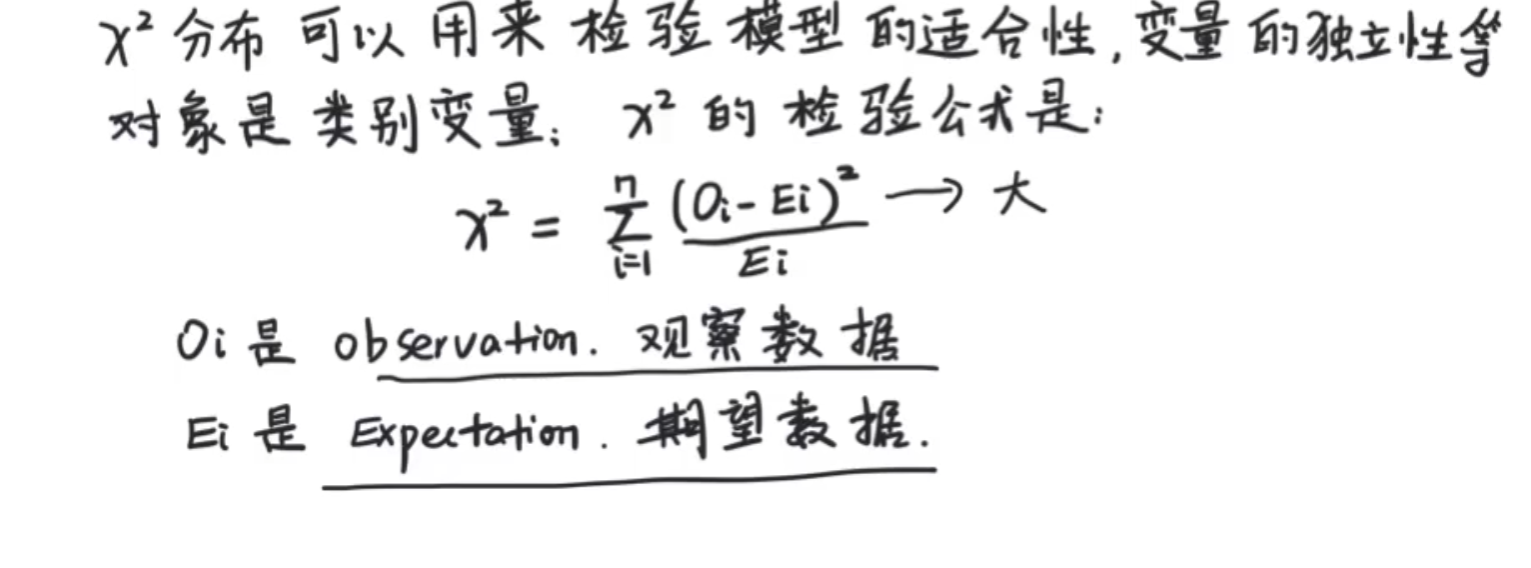 χ² 分布 可以 用来 检验 模型 的适合性, 变量 的独立性等
对象是 类别变量; χ² 的 检验公式是:
χ² = Σ_{i=1}^{n} (Oi - Ei)² / Ei → 大
Oi 是 observation. 观察数据
Ei 是 Expectation. 期望数据.